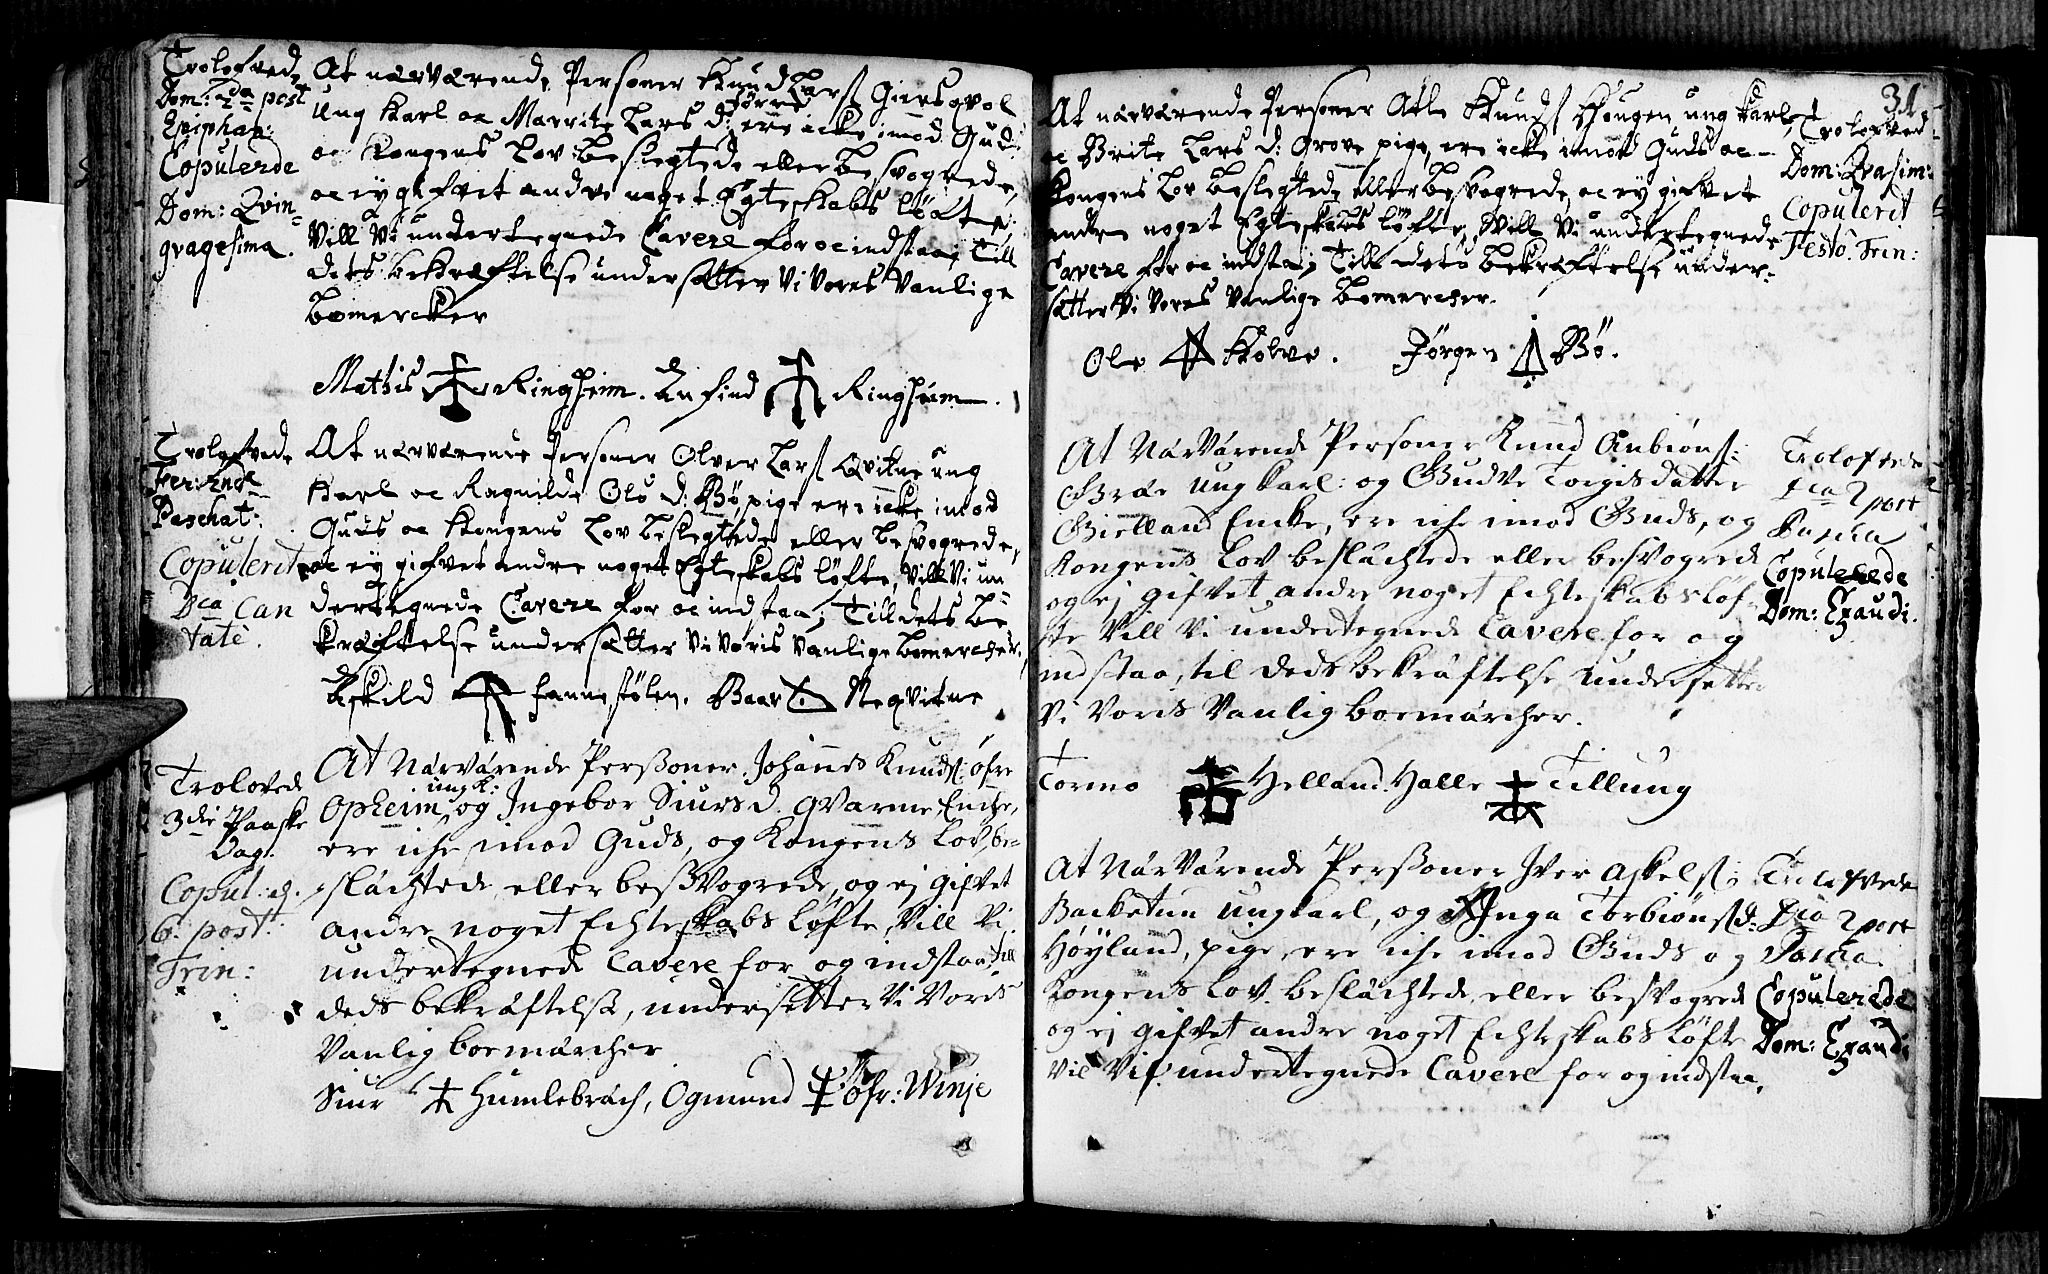 Trolofvede
Dom: 2da post
Epiphan:
Copulerde
Dom: Qvin-
qvagesima.
At nærværende Personer Knud Lars# Giersqvol
ung Karl oc Marrite Lars d: Tørre ere icke imod Guds
oc Kongens Lov beslegtede eller besvogrede,
oc ey gifvet andre noget Egteskabs løfte,
Vill Vi undertegnede Cavere for oc indstaa; Till
dets bekræftelse undersætter Vi vores Vanlige
bomercker
Mathis Ringheim. Anfind Ringheim.
Trolofvede
Fer: 2nda
Paschat:
Copulerit
Dca Can
tate.
At nærværende Personer Olver Lars# Qvitne ung
Karl oc Ragnilde Ols d: Bø, pige ere icke imod
Guds oc Kongens Lov beslegtede eller besvogrede,
oc ey gifvet andre noget Egteskabs løfte, Vill Vi un
dertegnede Cavere for oc indstaa; Till dets be
kræftelse undersætter Vi voris vanlige bomercher.
Askild Fennestølen. Baar Neqvitne
Trolovede
3die Paaske
Dag.
Copul: d.
6. post
Trin:
At Nærværende Perssoner Johannes Knuds#: øfre
Opheim ung k: og Ingebor Siurs d. Qvarme, Enche,
ere iche imod Guds, og Kongens Lov, be-
slächtede eller bessvogrede, og ej gifvet
andre noget Echteskabs Løfte, Vill Vi
undertegnede Cavere for og indstaa, till
deds bekräftelse, undersetter Vi Voris
Vanlig boemärcher
Siur Humlebräch, Ogmund øfr: Winje
31
At nærværende Personer Atle Knuds# Hougen ung karl,
oc Brite Lars d: Grove pige, ere icke imod Guds oc
Kongens Lov beslegtede eller besvogrede, oc ey gifvet
andre noget Egteskabs løfte, Will Vi undertegnede
Cavere for oc indstaa; Till dets bekræftelse under-
sætter Vi vores vanlige bomercher.
Trolofved
Dom: Qvasim:
Copulerit
Festo Trin:
Ole Kolve. Jørgen Bø.
At Närvärende Personer Knud Anbiøns#:
Græe ung karl: og Gudve Torgis datter
Gielland Encke, ere iche imod Guds, og
Kongens Lov beslächtede eller besvogrede
og ej gifvet andre noget Echteskabs løf
te Vill Vi undertegnede Cavere for og
indstaa, til deds bekräftelse undersetter
Vi Voris Vanlig boemärcher.
Trolofvede
Dca 2 post
Pascha
Copulerede
Dom: Exaudi.
Tormo Helland. Halle Tillung
At Närvärende Perssoner Iver Askels#:
Backetun ungkarl, og Inga Torbiøns d:
Høyland, pige, ere iche imod Guds og
Kongens Lov beslächtede, eller besvogrede
og ej gifvet andre noget Echteskabs Løfte
vil Vi undertegnede Cavere for og indstaa,
Trolofvede
Dca 2 post
Pascha
Copulerede
Dom: Exaudi